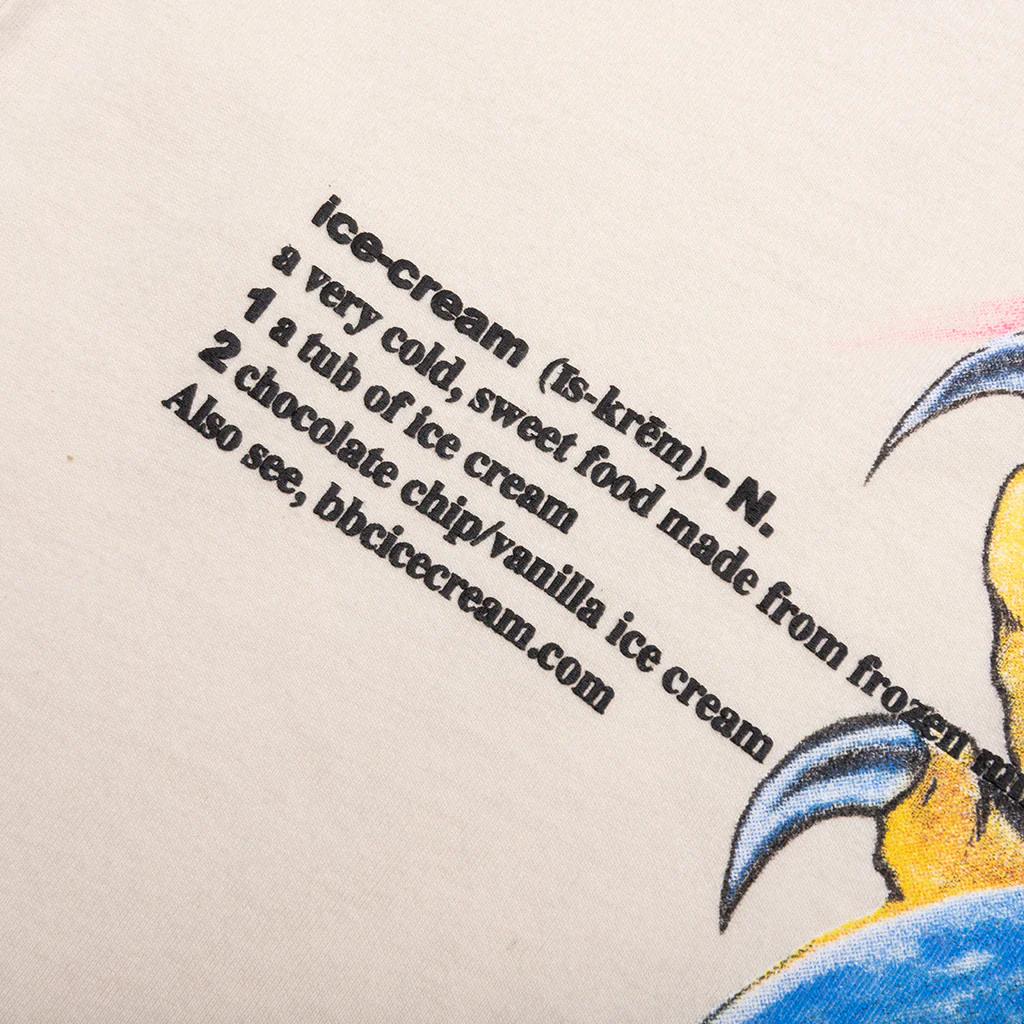 ice-cream (īs-krēm) – N.
a very cold, sweet food made from frozen
1 a tub of ice cream
2 chocolate chip/vanilla ice cream
Also see, bbcicecream.com